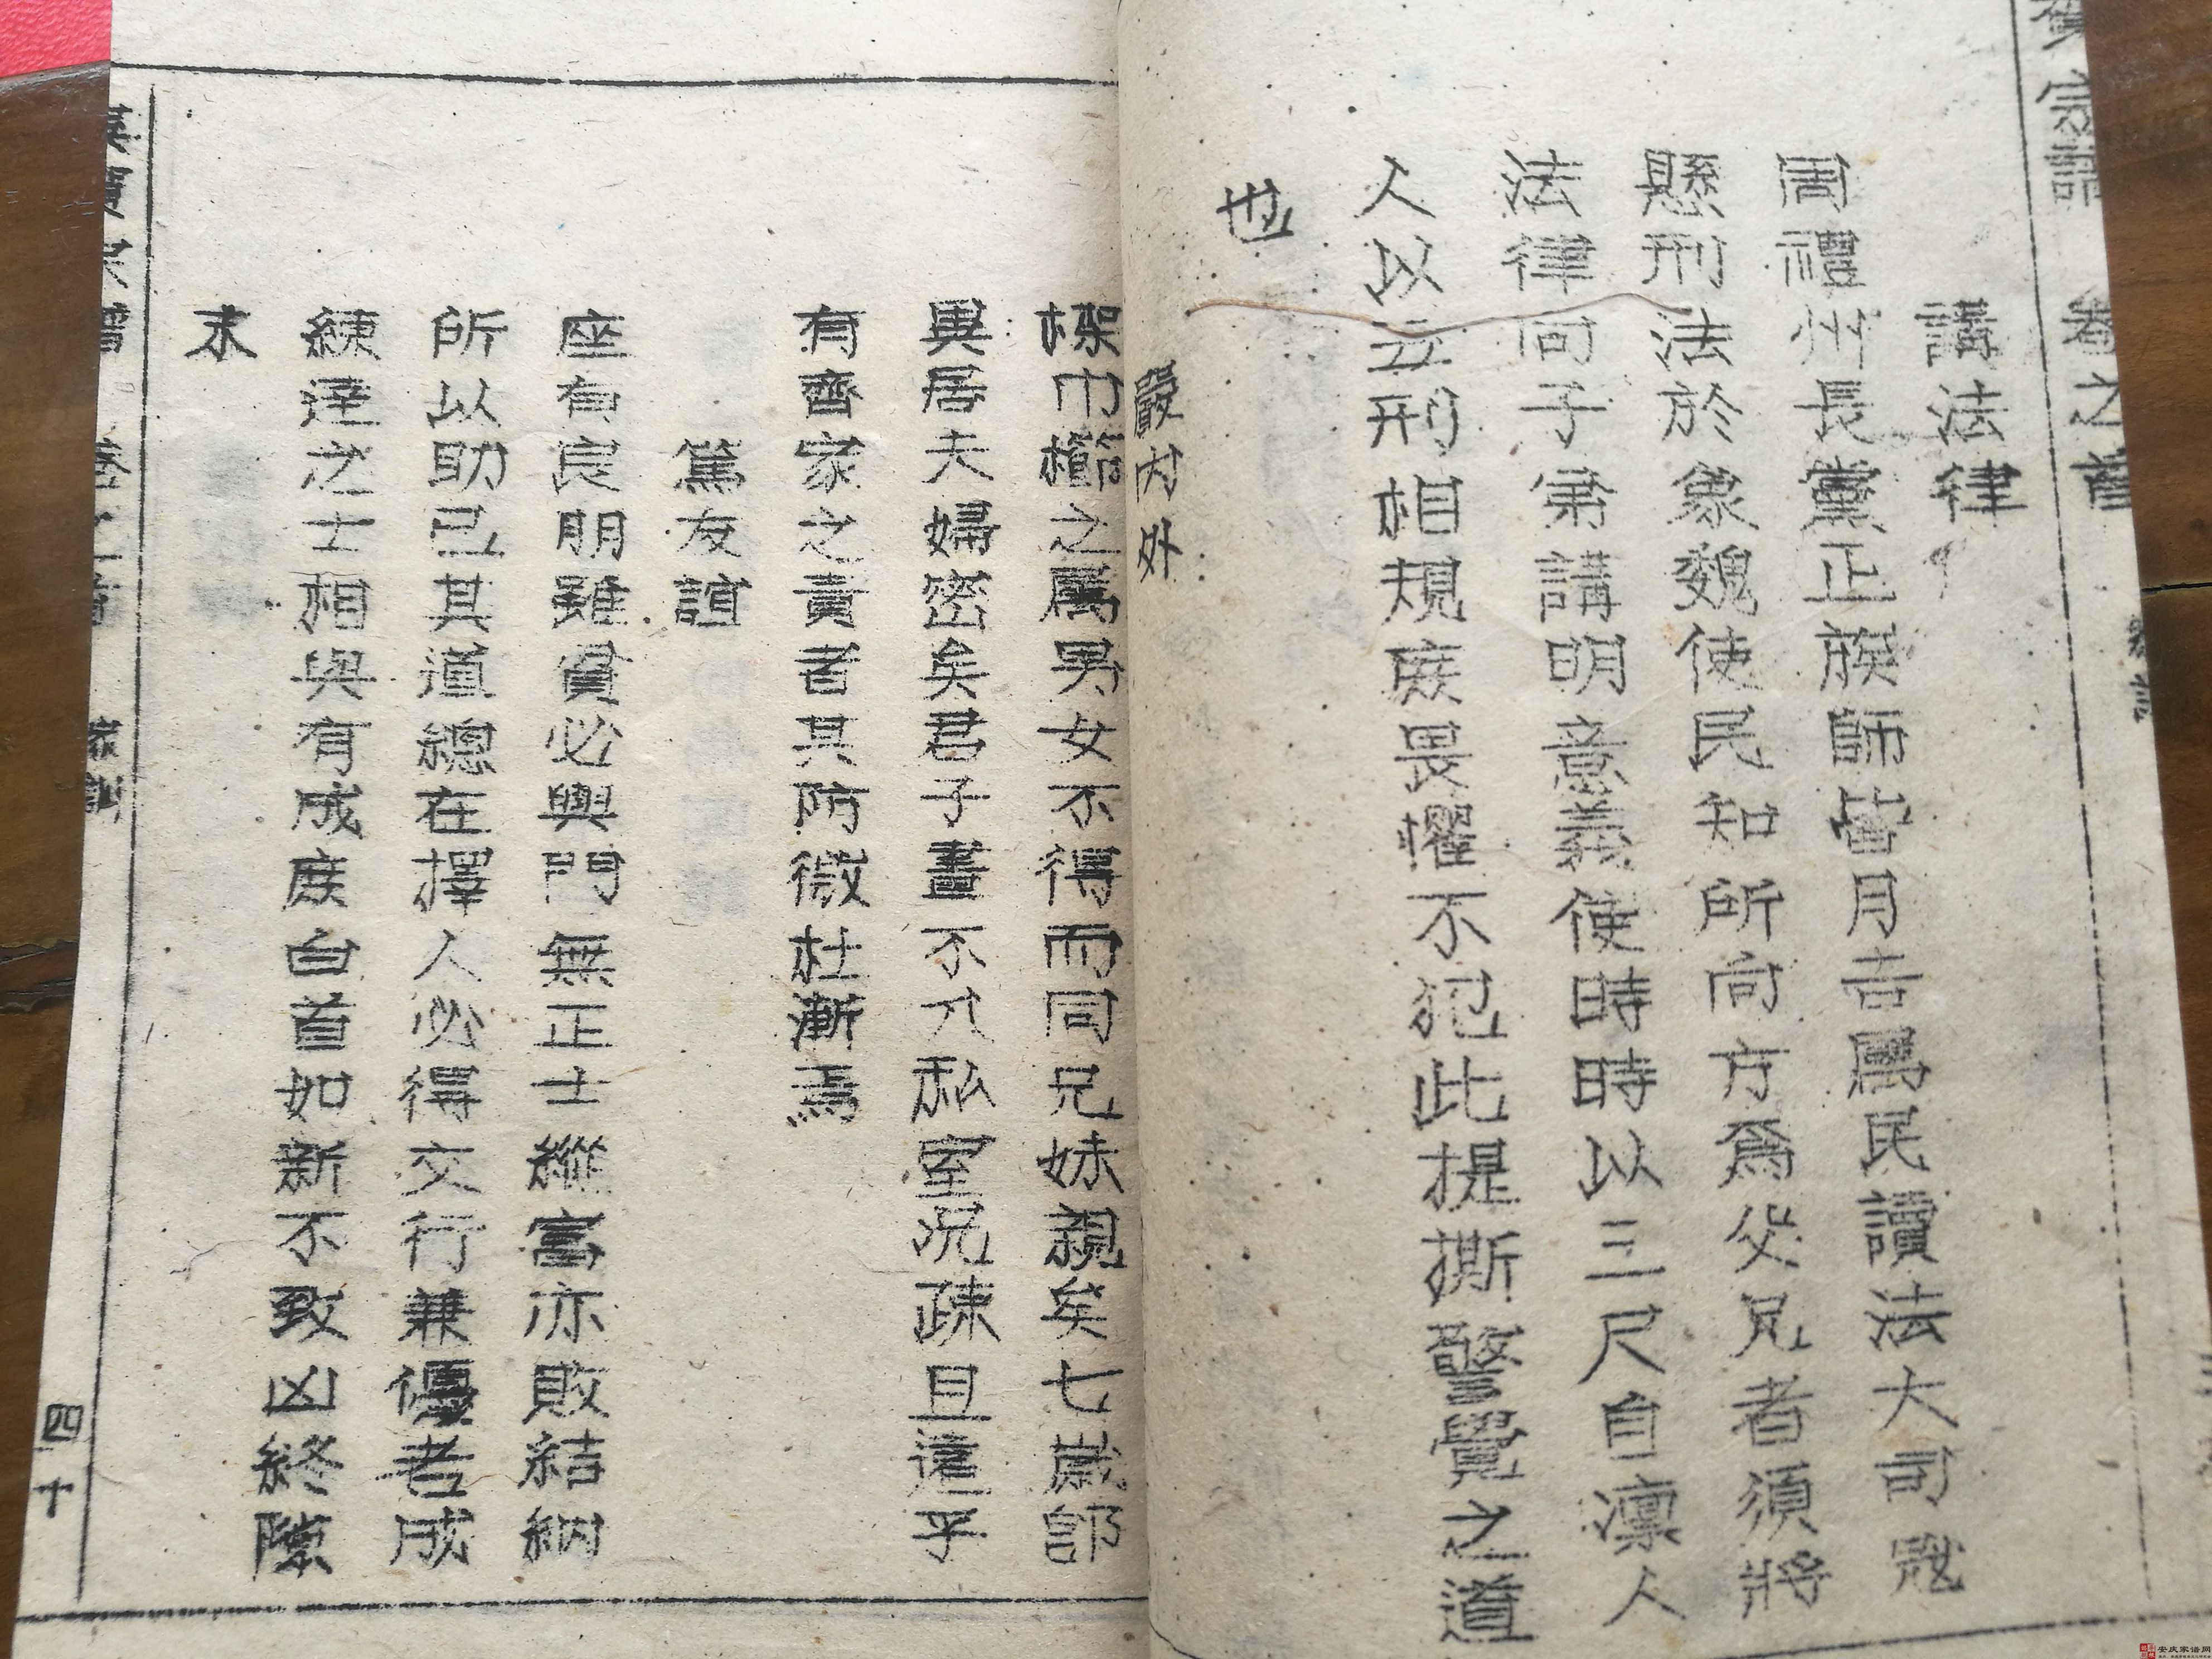 卷之首
講法律
周禮州長黨正族師皆月吉屬民讀法大司寇
懸刑法於象魏使民知所向方爲父兄者須將
法律向子弟講明意義使時時以三尺自凜人
人以五刑相規庶畏懼不犯此提撕警覺之道
也
嚴内外
椸巾櫛之屬男女不得而同兄妹親矣七歲即
異居夫婦密矣君子晝不入私室况疎且遠乎
有齊家之責者其防微杜漸焉
篤友誼
座有良朋雖貧必興門無正士縱富亦敗結納
所以助己其道總在擇人必得文行兼優老成
練達之士相與有成庶白首如新不致凶終隙
末
卷之首 家訓 四十
安庆家谱网